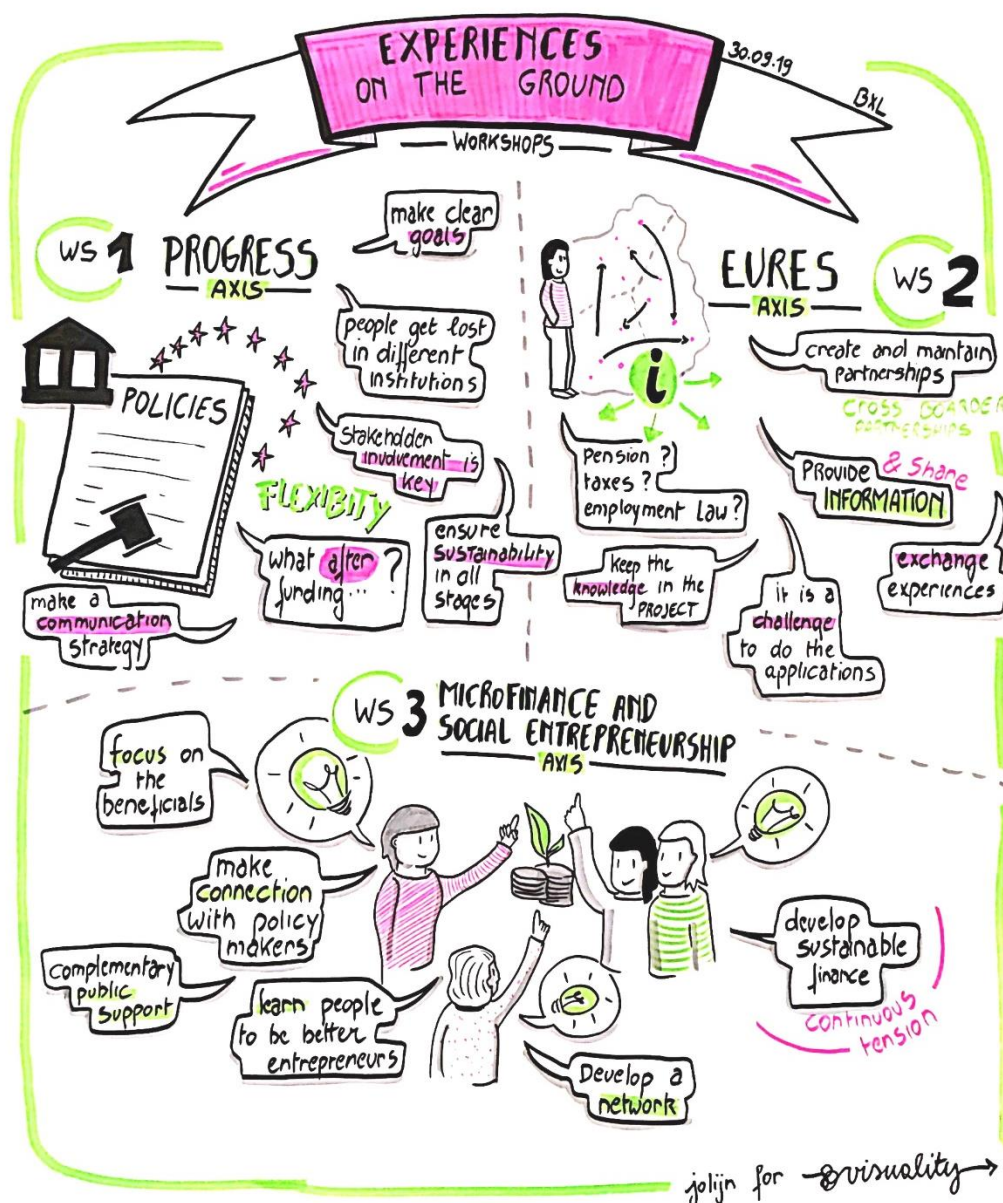 EXPERIENCES
ON THE GROUND
30.09.19
BXL
WORKSHOPS
WS 1
PROGRESS
AXIS
make clear
goals
people get lost
in different
institutions
POLICIES
Stakeholder
involvement is
key
FLEXIBITY
what after
funding... ?
ensure
sustainability
in all
stages
make a
communication
strategy
EURES
AXIS
WS 2
i
create and maintain
partnerships
CROSS BOARDER
PARTNERSHIPS
pension ?
taxes ?
employment law ?
PROVIDE & Share
INFORMATION
keep the
knowledge in the
PROJECT
exchange
experiences
it is a
challenge
to do the
applications
WS 3
MICROFINANCE AND
SOCIAL ENTREPRENEURSHIP
AXIS
focus on
the
beneficials
make
connection
with policy
makers
complementary
public
support
learn people
to be better
entrepreneurs
develop
sustainable
finance
continuous
tension
Develop a
network
jolijn for visuality